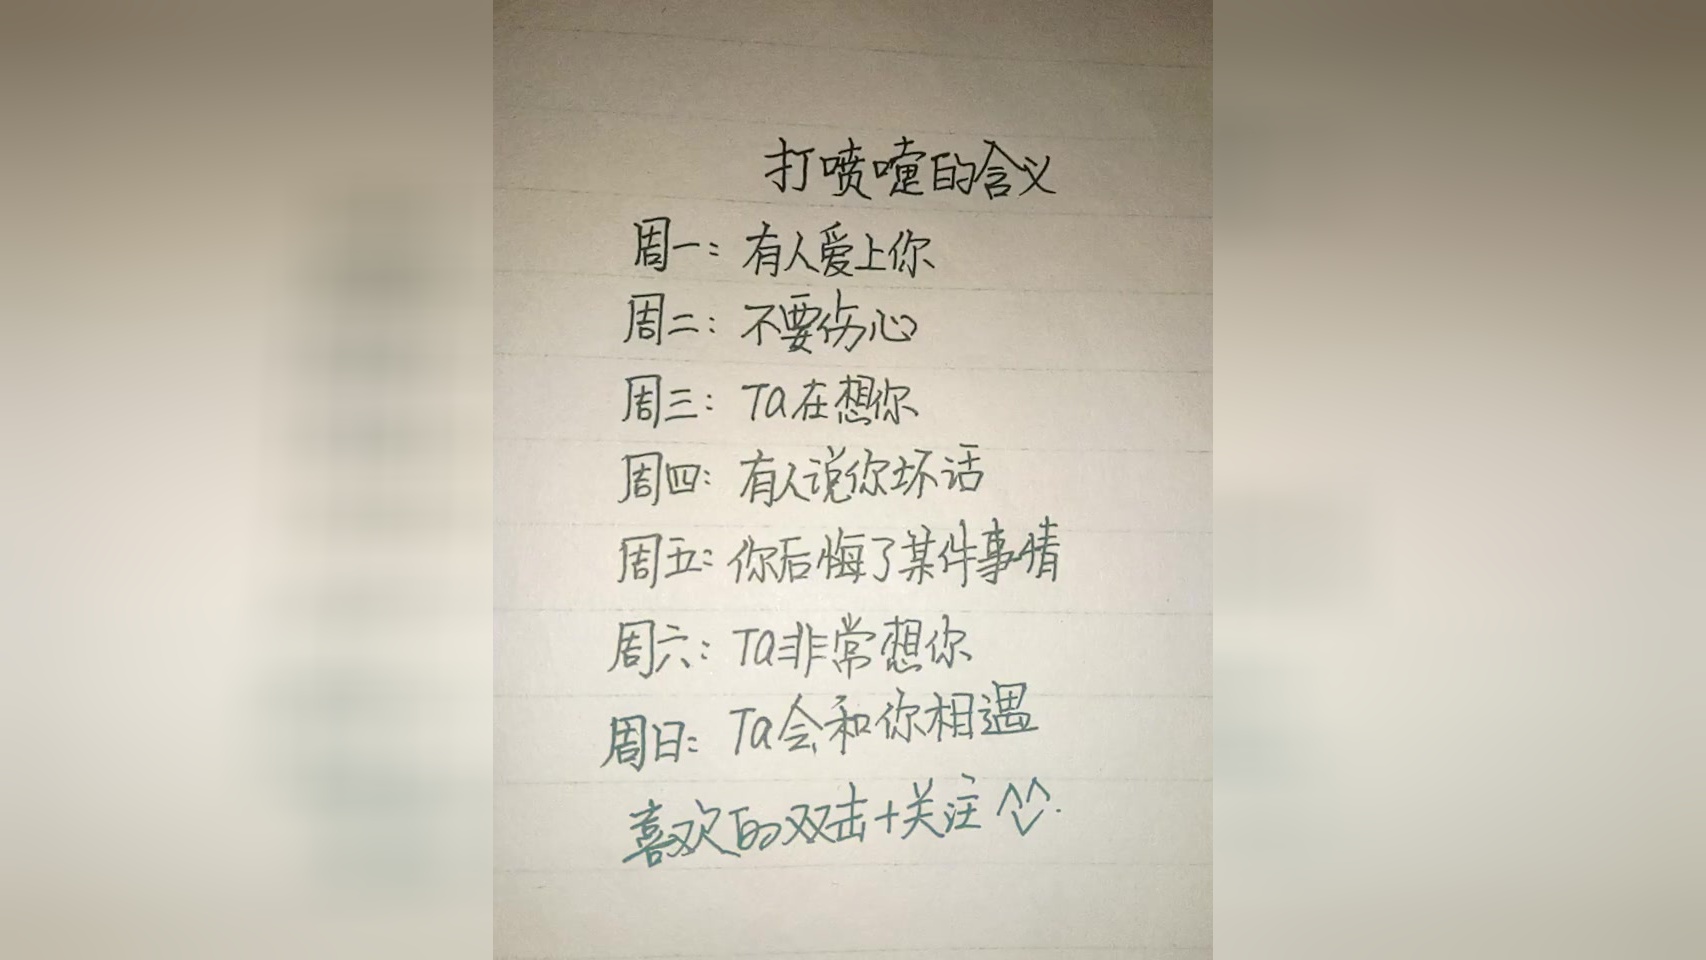 打喷嚏的含义
周一：有人爱上你
周二：不要伤心
周三：Ta在想你
周四：有人说你坏话
周五：你后悔了某件事情
周六：Ta非常想你
周日：Ta会和你相遇
喜欢的双击+关注